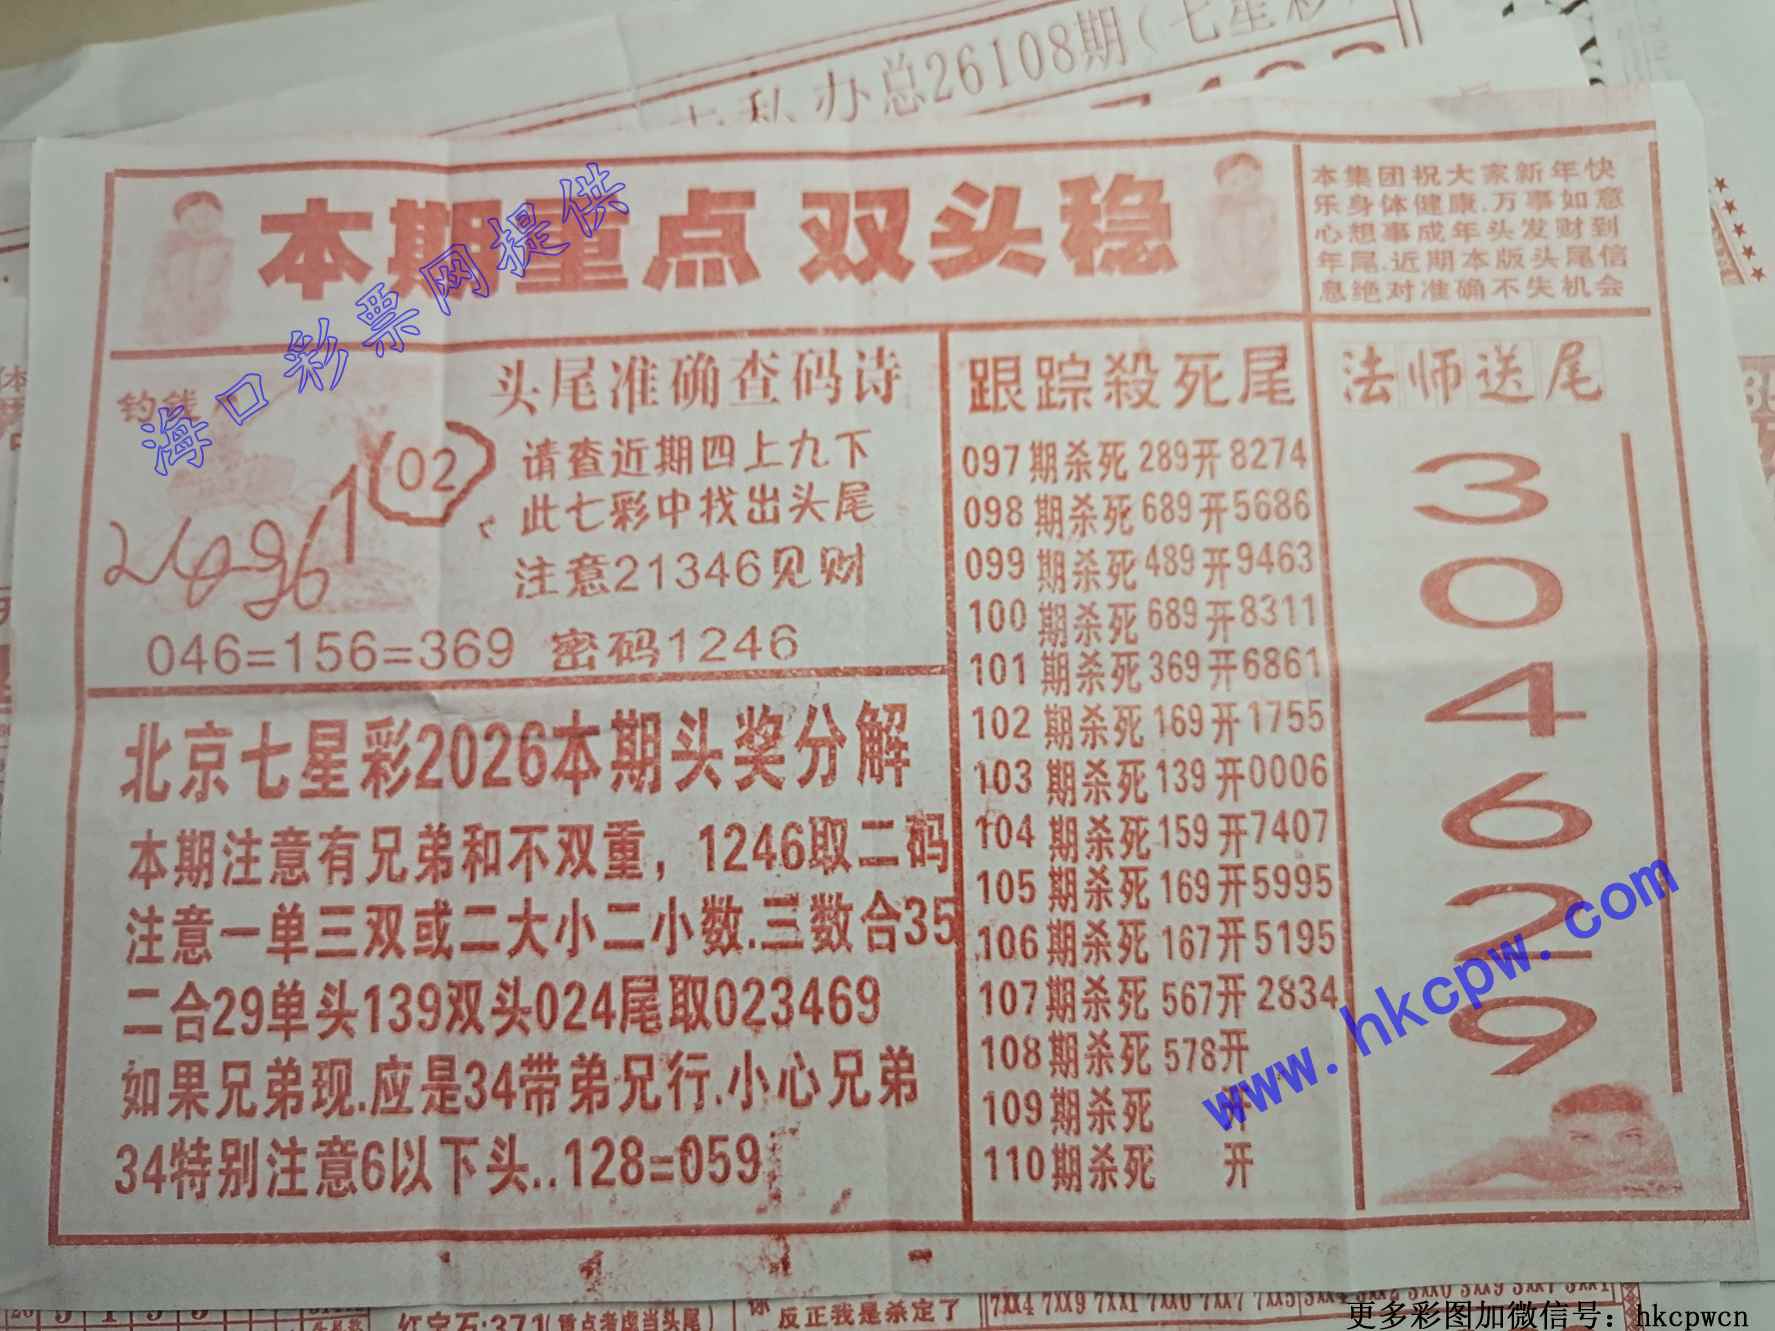 办总26108期(七星彩
本期重点 双头稳
本集团祝大家新年快
乐身体健康.万事如意
心想事成年头发财到
年尾.近期本版头尾信
息绝对准确不失机会
海口彩票网提供
钓钱
02
头尾准确查码诗
请查近期四上九下
此七彩中找出头尾
注意21346见财
046=156=369 密码1246
北京七星彩2026本期头奖分解
本期注意有兄弟和不双重，1246取二码
注意一单三双或二大小二小数.三数合35
二合29单头139双头024尾取023469
如果兄弟现.应是34带弟兄行.小心兄弟
34特别注意6以下头..128=059
跟踪殺死尾
097期杀死289开8274
098期杀死689开5686
099期杀死489开9463
100期杀死689开8311
101期杀死369开6861
102期杀死169开1755
103期杀死139开0006
104期杀死159开7407
105期杀死169开5995
106期杀死167开5195
107期杀死567开2834
108期杀死578开
109期杀死 开
110期杀死 开
法师送尾
3
0
4
6
2
9
www.hkcpw.com
红宝石:371(重点考虑当头尾)
反正我是杀定了
7XX4 7XX9 7XX1 7XX0 7XX7 7XX5
更多彩图加微信号：hkcpwcn